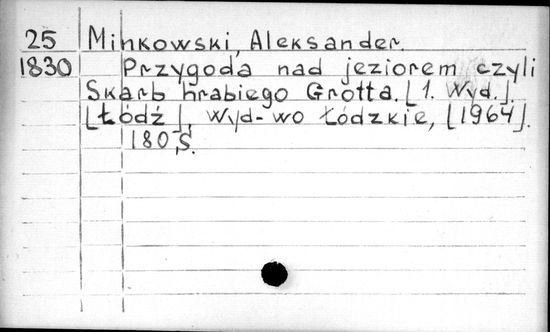 25 Minkowski, Aleksander.
1830 Przygoda nad jeziorem czyli
Skarb hrabiego Grotta. [1. Wyd.].
[Łódź], Wyd-wo Łódzkie, [1964].
180 S.